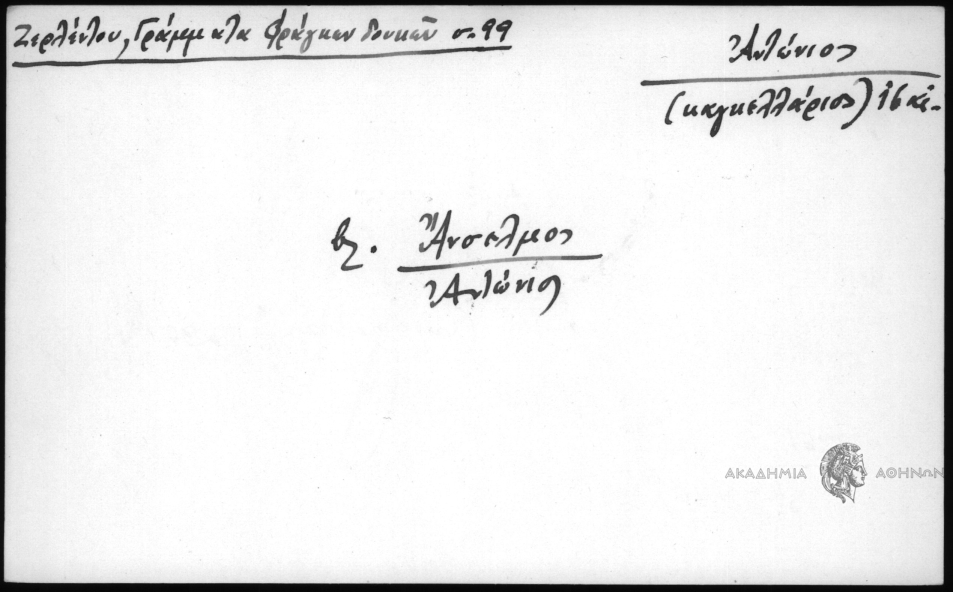 Ζερλέντου, Γράμματα Φράγκων δουκῶν σ. 99
Ἀντώνιος
(καγκελλάριος) 16 αἰ.
βλ. Ἄνσελμος
Ἀντώνιος
ΑΚΑΔΗΜΙΑ ΑΘΗΝΩΝ